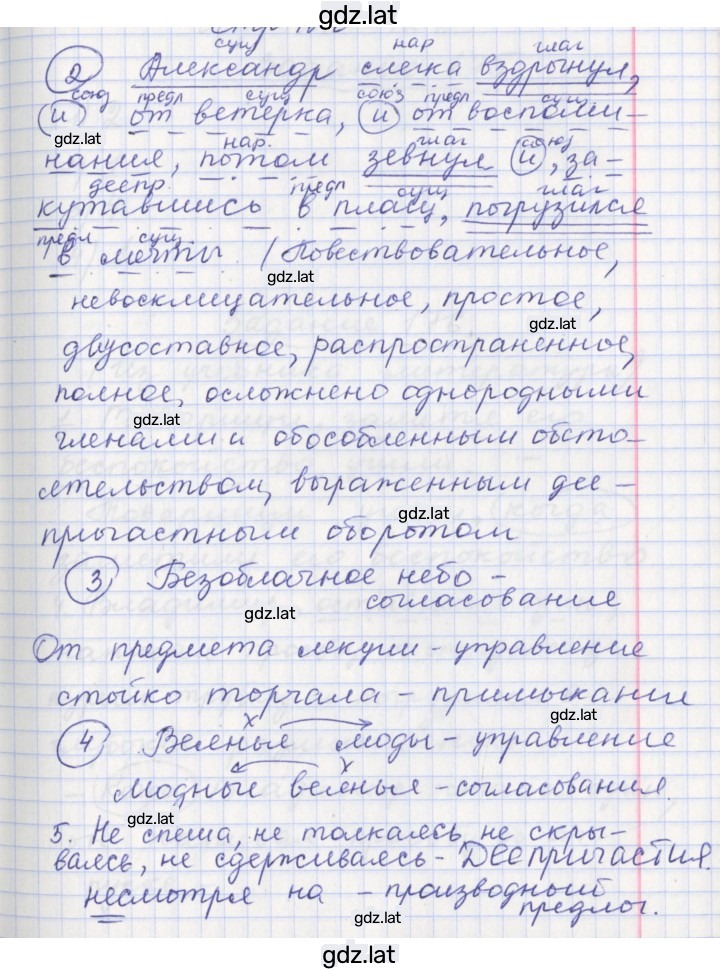 gdz.lat
сущ нар глаг
2 Александр слегка вздрогнул,
союз предл сущ союз предл сущ
и от ветерка, и от воспоми-
gdz.lat
нар. глаг союз
нания, потом зевнул и, за-
деепр. предл сущ глаг
кутавшись в плащ, погрузился
предл сущ
в мечты /Повествовательное,
gdz.lat
невосклицательное, простое,
gdz.lat
двусоставное, распространенное,
полное, осложнено однородными
gdz.lat
членами и обособленным обсто-
ятельством, выраженным дее-
gdz.lat
причастным оборотом
3 Безоблачное небо -
согласование
gdz.lat
От предмета лекции - управление
стойко торчала - примыкание
gdz.lat
х
4 Веянья моды - управление
х
Модные веянья - согласования.
gdz.lat
5. Не спеша, не толкаясь, не скры-
ваясь, не сдерживаясь - Деепричастия.
несмотря на - производный
предлог.
gdz.lat
gdz.lat